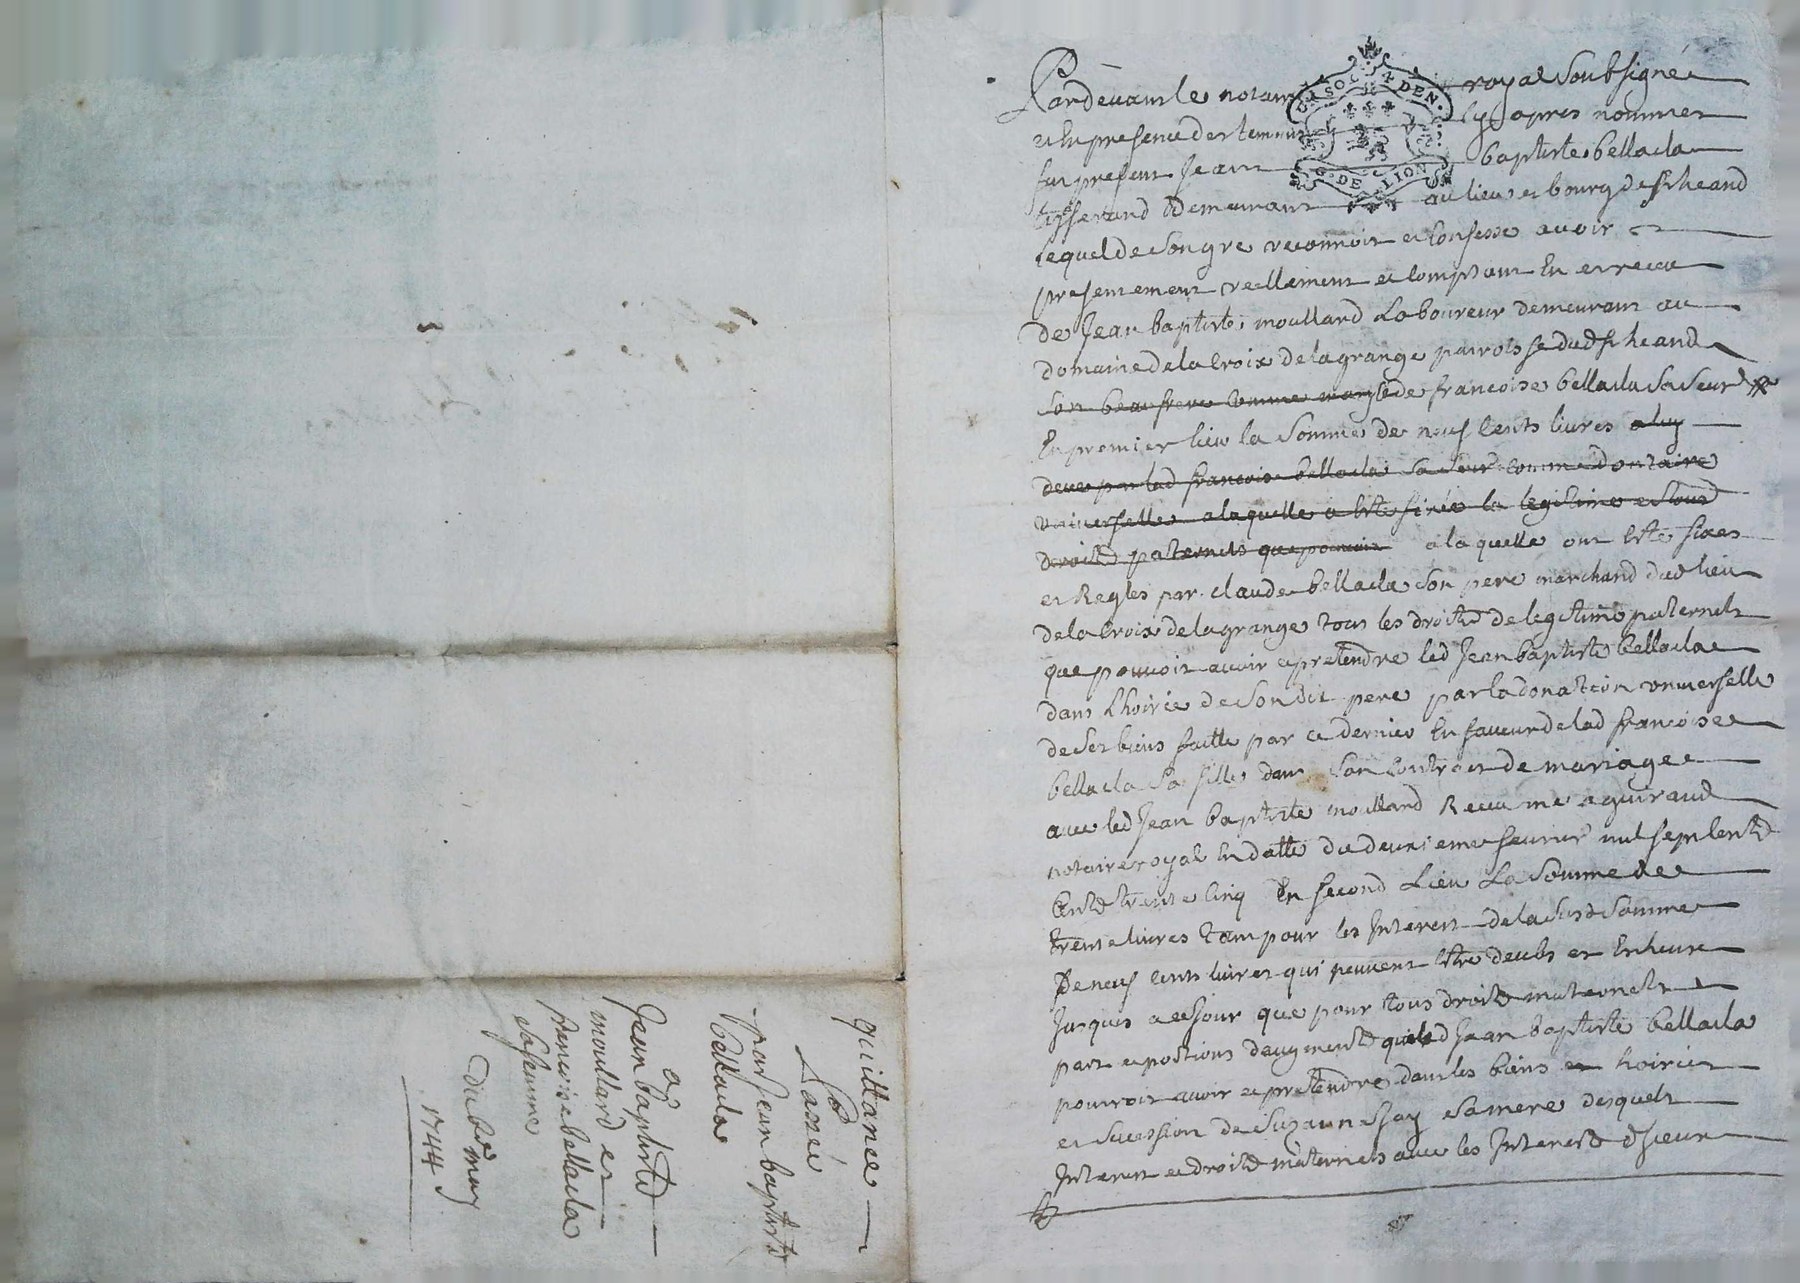 quittance
900 passée
par Jean baptiste
bellacla
a
Jean baptiste
moullard et
francoise bellacla
sa femme
du 6e may
1744
Pardevant le notaire royal Soubsigné
et En presence des temoins Cy apres nommes
fut present Jean baptiste bellacla
tisserand demeurant au lieu et bourg de St heand
lequel de Son gre reconnoit et Confesse avoir
presentement reellement et Comptant Eu et receu
de Jean baptiste moullard Laboureur demeurant au
domaine de la Croix de la grange parroisse dud St heand
Son beau frere Comme mary de francoise bellacla Sa Seur
En premier lieu la Somme de neuf Cents livres a luy
deue par lad francoise bellacla Sa Seur Comme donataire
universelle a laquelle a Eté fixée la legitime et tous
droits paternels que pouvoit a laquelle ont Eté fixes
et Regles par claude bellacla Son pere marchand dud lieu
de la Croix de la grange tous les droits de legitime paternels
que pouvoit avoir et pretendre led Jean baptiste bellacla
dans Lhoirie de Son dit pere par la donation universelle
de Ses biens faitte par ce dernier En faveur de lad francoise
bellacla Sa fille dans Son Contract de mariage
avec led Jean baptiste moullard Receu me aguiraud
notaire royal En datte du deuxieme fevrier mil Sept Cents
trente Cinq En Second Lieu La Somme de
trente livres tant pour les Interets de la Susd Somme
De neuf Cents livres qui peuvent Etre deubs et Encheus
Jusques a ce Jour que pour tous droits maternels
part et portions daugments que led Jean baptiste bellacla
pourroit avoir et pretendre dans les biens et hoirie
et Sucession de Suzanne Sa mere desquels
Interets et droits maternels avec les Interets dyceux
G. DE LION